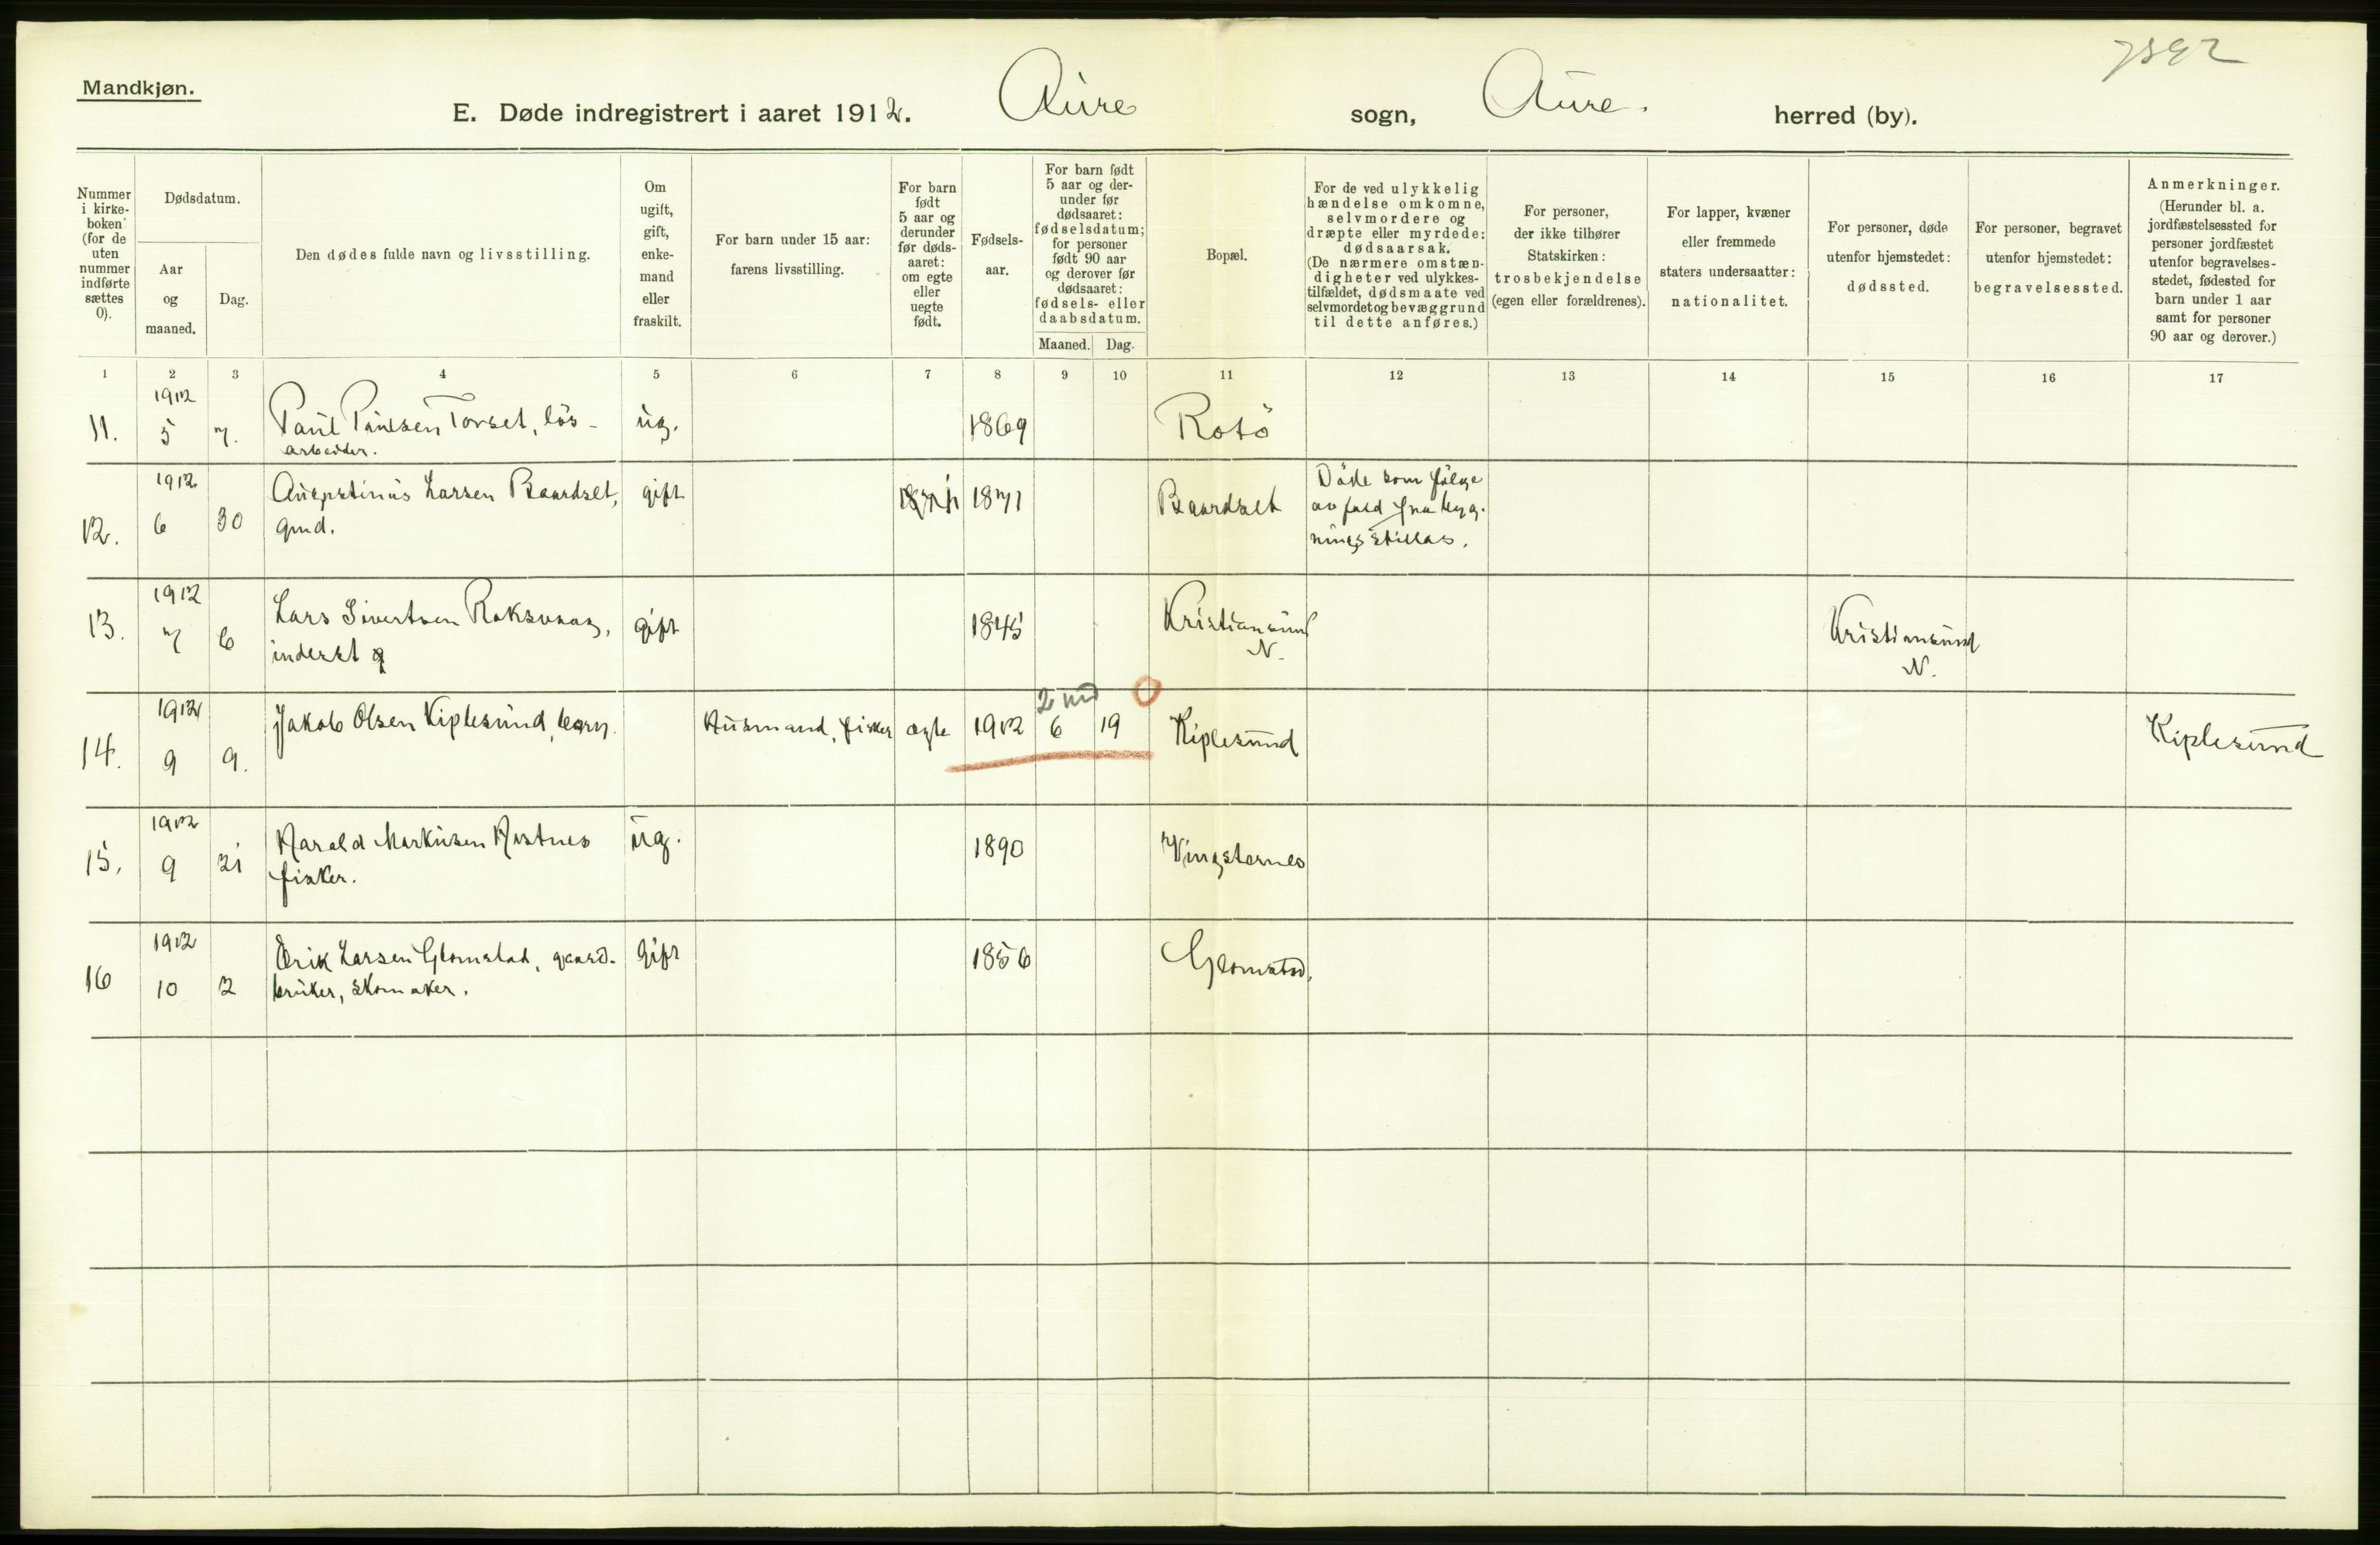 Mandkjøn.
E. Døde indregistrert i aaret 1912. Aure sogn, Aure. herred (by).
Nummer i kirke-boken (for de uten nummer indførte sættes 0).
Dødsdatum.
Aar og maaned.
Dag.
Den dødes fulde navn og livsstilling.
Om ugift, gift, enke-mand eller fraskilt.
For barn under 15 aar: farens livsstilling.
For barn født 5 aar og derunder før døds-aaret: om egte eller uegte født.
Fødsels-aar.
For barn født 5 aar og der-under før dødsaaret: fødselsdatum; for personer født 90 aar og derover før dødsaaret: fødsels- eller daabsdatum.
Maaned.
Dag.
Bopæl.
For de ved ulykkelig hændelse omkomne, selvmordere og dræpte eller myrdede: dødsaarsak. (De nærmere omstæn-digheter ved ulykkes-tilfældet, dødsmaate ved selvmordet og bevæggrund til dette anføres.)
For personer, der ikke tilhører Statskirken: trosbekjendelse (egen eller forældrenes).
For lapper, kvæner eller fremmede staters undersaatter: nationalitet.
For personer, døde utenfor hjemstedet: dødssted.
For personer, begravet utenfor hjemstedet: begravelsessted.
Anmerkninger. (Herunder bl. a. jordfæstelsessted for personer jordfæstet utenfor begravelses-stedet, fødested for barn under 1 aar samt for personer 90 aar og derover.)
1 2 3 4 5 6 7 8 9 10 11 12 13 14 15 16 17
11. 1912 5 7. Paul Paulsen Torset, løs-arbeider. ug. 1869 Rotö
12. 1912 6 30 Augustinus Larsen Baardset, gmd. gift 1871 Baardset Döde som fölge av fald fra byg-nings stillas.
13. 1912 7 6 Lars Sivertsen Roksvaag, inderst gift 1845 Kristiansund N. Kristiansund N.
2 md 0
14. 1912 9 9. Jakob Olsen Kiplesund, barn. Husmand, fisker ægte 1912 6 19 Kiplesund Kiplesund
15. 1912 9 21 Harald Markusen Hestnes fisker. ug. 1890 Vingsternes
16 1912 10 2 Erik Larsen Glomstad, gaard-bruker, skomaker. gift 1856 Glomstad,